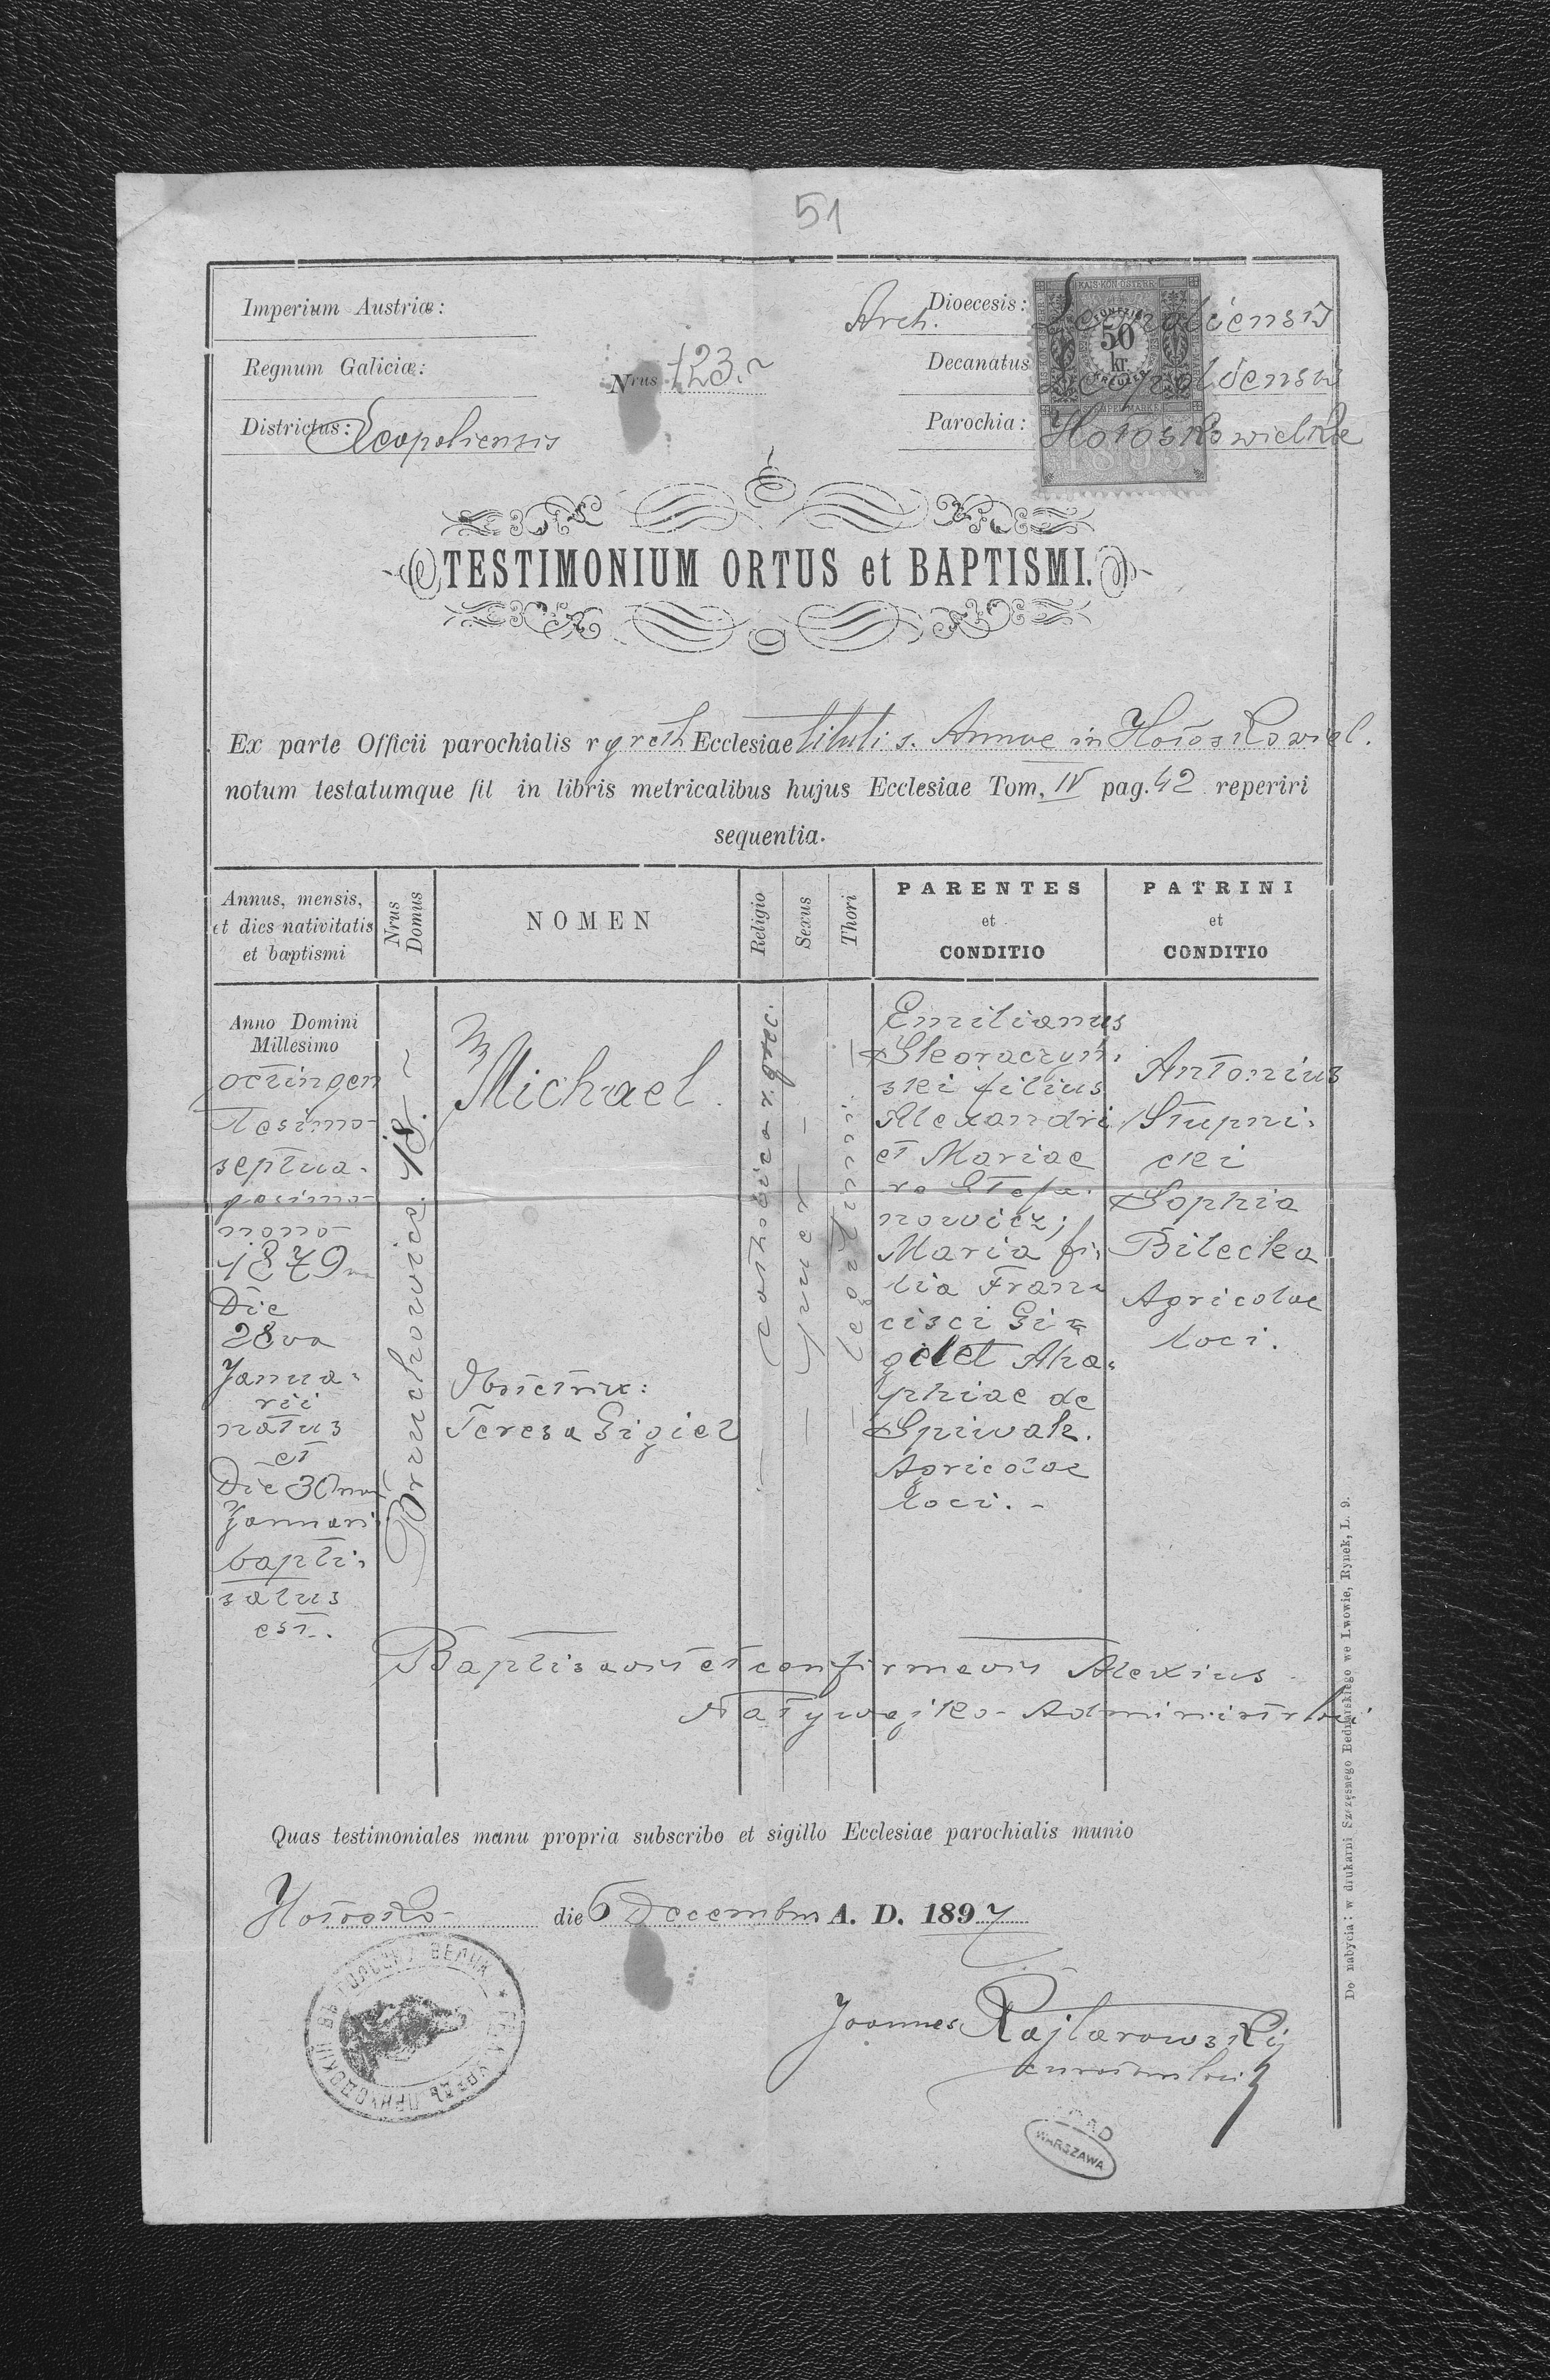 51
Imperium Austriæ:
Regnum Galiciæ:
Districtus: Leopoliensis
Nrus 123.
Arch. Dioecesis: Leopoliensis
Decanatus Leopoliensis
Parochia: Hołosko wielkie
KAIS. KÖN. ÖSTERR.
50
kr.
STEMPEL MARKE
1893
TESTIMONIUM ORTUS et BAPTISMI.
Ex parte Officii parochialis r gr cath Ecclesiae tituli s. Annae in Hołosko wiel.
notum testatumque sit in libris metricalibus hujus Ecclesiae Tom. IV pag. 42 reperiri
sequentia.
Annus, mensis,
et dies nativitatis
et baptismi
Nrus
Domus
NOMEN
Religio
Sexus
Thori
PARENTES
et
CONDITIO
PATRINI
et
CONDITIO
Anno Domini
Millesimo
octingen
tesimo
septua-
gesimo
nono
1879
Die
28va
Janua-
rii
natus
et
Die 30ma
Januari
bapti-
satus
est.
Bruchowice. 18.
Michael.
Obstetrix:
Teresa Gigiel
catholica r. grec.
Emilianus
Skoraczyń-
ski filius
Alexandri
et Mariae
Stefa-
nowicz;
Maria fi-
lia Fran-
cisci Gi
giel et Aha-
phiae de
Spiwak.
Agricolae
loci. -
Antonius
Stupni-
cki
Sophia
Bilecka
Agricolae
loci.
Baptisavit et confirmavit Alexius
Natywajko - Administr loci
Quas testimoniales manu propria subscribo et sigillo Ecclesiae parochialis munio
Hołosko die 6 Decembris A. D. 1897
Joannes Rajtarowskij
WARSZAWA
Do nabycia: w drukarni Szczęsnego Bednarskiego we Lwowie, Rynek, L. 9.